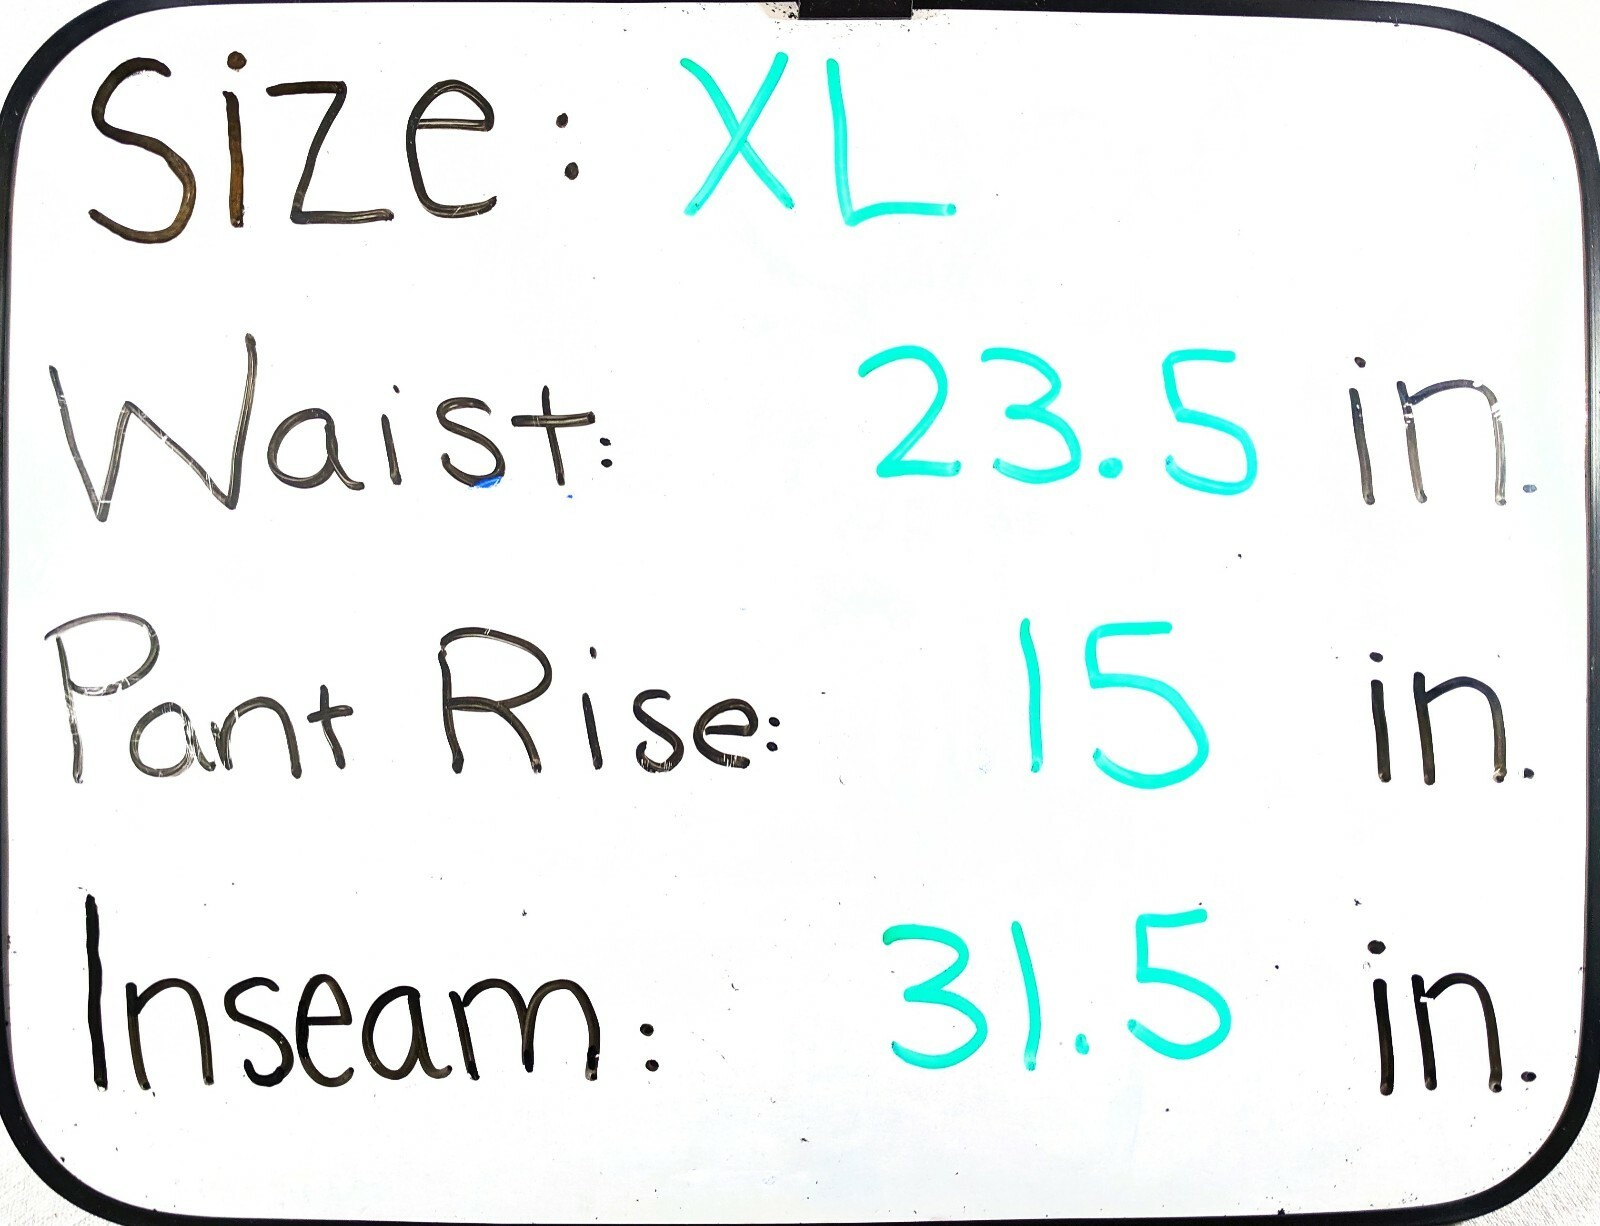 Size: XL
Waist: 23.5 in.
Pant Rise: 15 in.
Inseam: 31.5 in.